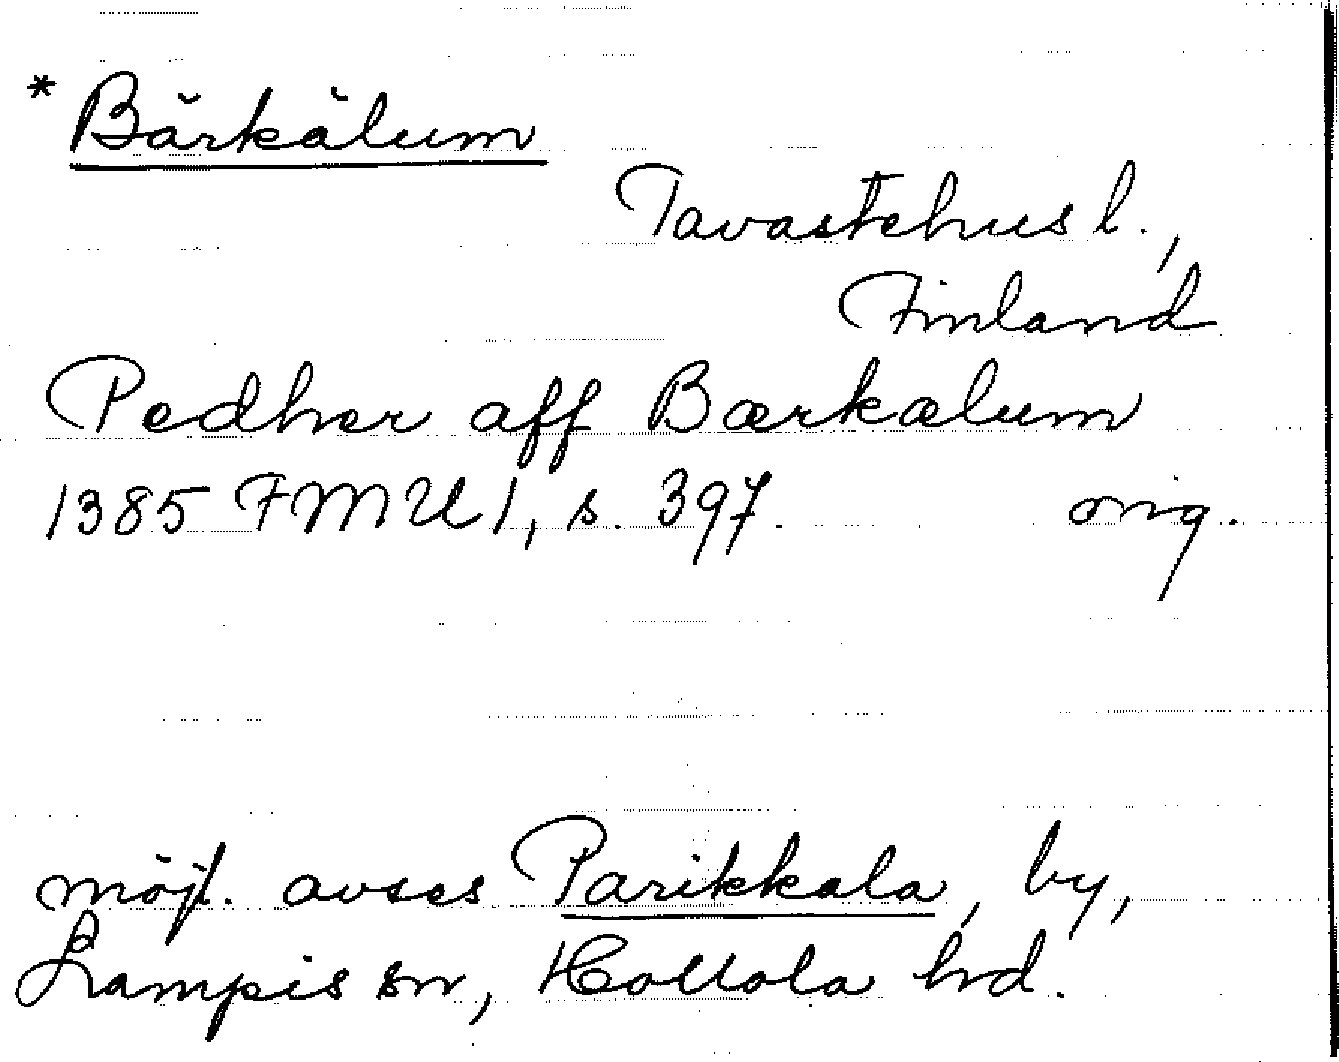 * Bärkälum
Tavastehus l.,
Finland
Pedher aff Bærkælum
1385 FMU 1, s. 397. orig.
möjl. avses Parikkala, by,
Lampis sn, Hollola hd.